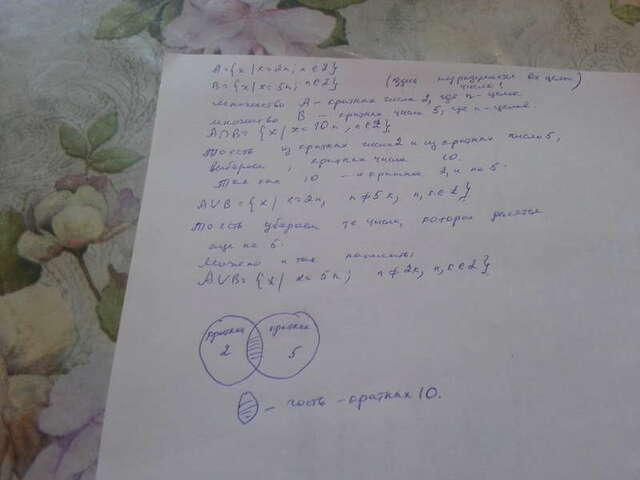 A={x | x=2n; n∈Z}
B={x | x=5n; n∈Z} (здесь подразумеваются все целые числа!)
множество A - кратных числа 2, где n-целое.
множество B - кратных числа 5, где n-целое.
A∩B= {x | x=10n, n∈Z};
То есть из кратных числа 2 и из кратных число 5,
выбираем, кратные числа 10.
Так как 10 - кратно 2, и на 5.
A∪B={x | x=2n, n≠5k, n,k∈Z}
То есть убираем те числа, которые делятся
еще на 5.
Можно и так написать:
A∪B= {x | x=5n; n≠2k, n,k∈Z}
кратных 2
кратных 5
- часть - кратных 10.